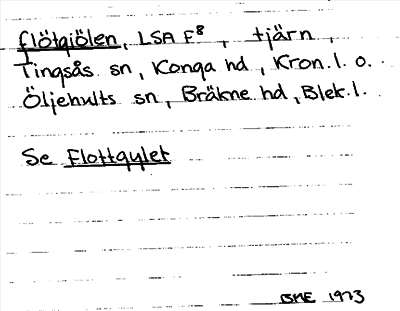 flötgiölen, LSA F8, tjärn,
Tingsås sn, Konga hd, Kron.l. o.
Öljehults sn, Bräkne hd, Blek.l.
Se Flottgylet
BME 1973